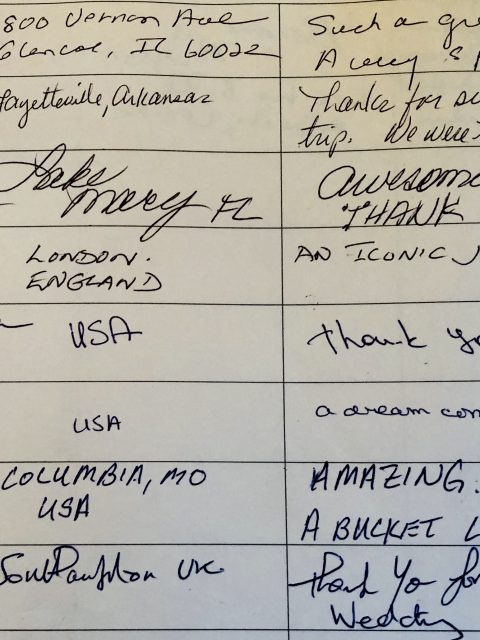 800 Vernon Ave
Glencoe, IL 60022
Such a gr
A very sp
Fayetteville, Arkansas
Thanks for su
trip. We were
Lake
Mary FL
Awesome
THANK
LONDON.
ENGLAND
AN ICONIC J
USA
thank yo
USA
a dream com
COLUMBIA, MO
USA
AMAZING.
A BUCKET L
Southampton UK
thank you for
Wedding